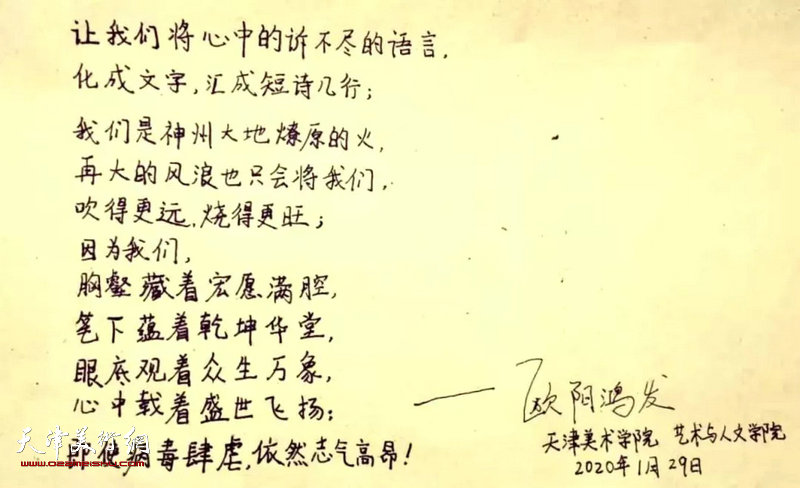 让我们将心中的诉不尽的语言,
化成文字,汇成短诗几行;
我们是神州大地燎原的火,
再大的风浪也只会将我们,
吹得更远,烧得更旺;
因为我们,
胸壑藏着宏愿满腔,
笔下蕴着乾坤华堂,
眼底观着众生万象,
心中载着盛世飞扬;
即使病毒肆虐,依然志气高昂!
——欧阳鸿发
天津美术学院 艺术与人文学院
2020年1月29日
天津美术网
www.022meishu.com